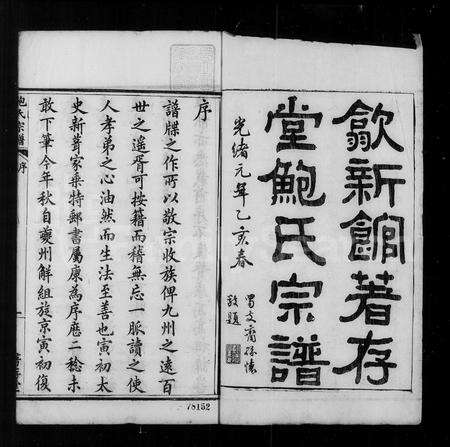 歙新館著存
堂鮑氏宗譜
光緒元年乙亥春
敬題
序
譜牒之作所以敬宗收族俾九州之遠百
世之遙胥可按籍而稽無忘一脈讀之使
人孝弟之心油然而生法至善也寅初太
史新葺家乘特郵書屬康為序歷二稔未
敢下筆今年秋自夔州解組旋京寅初復
鮑氏宗譜
序
一
78152